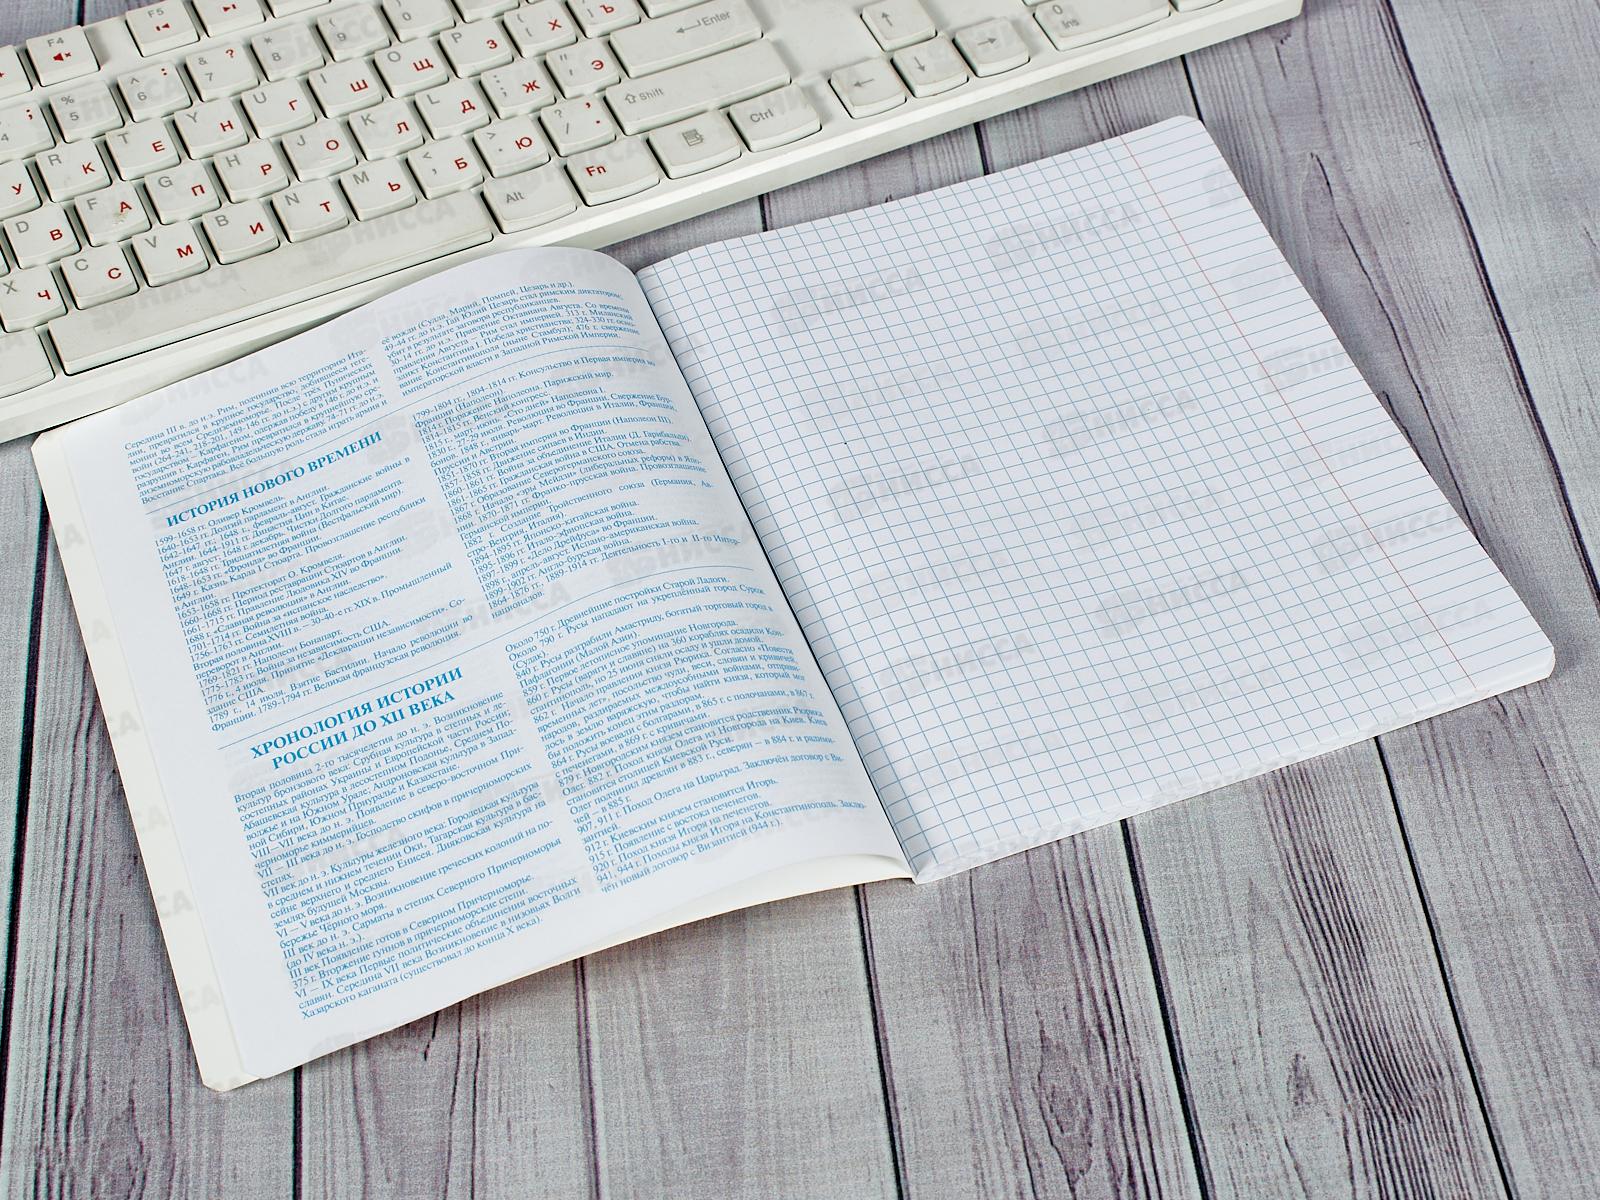 Середина III в. до н.э. Рим, подчинив всю территорию Ита-
лии, превратился в крупное государство, добившееся геге-
монии во всем Средиземноморье. После трёх Пунических
войн (264-241, 218-201, 149-146 гг. до н.э.) с другим крупным
государством – Карфагеном, одержав победу в 146 г. до н.э. и
разрушив г. Карфаген, Рим превратился в крупнейшую сре-
диземноморскую рабовладельческую державу. 74-71 гг. до н.э.
Восстание Спартака. Всё большую роль стала играть армия и
её вожди (Сулла, Марий, Помпей, Цезарь и др.).
49-44 гг. до н.э. Гай Юлий Цезарь стал римским диктатором,
убит в результате заговора республиканцев.
30-14 гг. до н.э. Правление Октавиана Августа. Со времени
правления Августа – Рим стал империей. 313 г. Миланский
эдикт Константина I. Победа христианства; 324-330 гг. осно-
вание Константинополя (ныне Стамбул); 476 г. свержение
императорской власти в Западной Римской Империи.
ИСТОРИЯ НОВОГО ВРЕМЕНИ
1599-1658 гг. Оливер Кромвель.
1640-1653 гг. Долгий парламент в Англии.
1642-1647 гг.; 1648 г., февраль-август. Гражданские войны в
Англии. 1644-1911 гг. Династия Цин в Китае.
1647 г. август, 1648 г. декабрь. Чистки Долгого парламента.
1618-1648 гг. Тридцатилетняя война (Вестфальский мир).
1648-1653 гг. «Фронда» во Франции.
1649 г. Казнь Карла I Стюарта. Провозглашение республики
в Англии.
1653-1658 гг. Протекторат О. Кромвеля.
1660-1668 гг. Период реставрации Стюартов в Англии.
1661-1715 гг. Правление Людовика XIV во Франции.
1688 г. «Славная революция» в Англии.
1701-1714 гг. Война за «испанское наследство».
1756-1763 гг. Семилетняя война.
Вторая половина XVIII в. – 30-40-е гг. XIX в. Промышленный
переворот в Англии.
1769-1821 гг. Наполеон Бонапарт.
1775-1783 гг. Война за независимость США.
1776 г., 4 июля. Принятие «Декларации независимости». Со-
здание США.
1789 г., 14 июля. Взятие Бастилии. Начало революции во
Франции. 1789-1794 гг. Великая французская революция.
1799-1804 гг., 1804-1814 гг. Консульство и Первая империя во
Франции (Наполеон).
1814 г. Поражение Наполеона. Парижский мир.
1814-1815 гг. Венский конгресс.
1815 г., март-июнь. «Сто дней» Наполеона I.
1830 г., 27-29 июля. Революция во Франции. Свержение Бур-
бонов. 1848 г., январь-март. Революция в Италии, Франции,
Пруссии и Австрии.
1851-1870 гг. Вторая империя во Франции (Наполеон III).
1857-1858 гг. Движение сипаев в Индии.
1860-1861 гг. Война за объединение Италии (Д. Гарибальди).
1861-1865 гг. Гражданская война в США. Отмена рабства.
1867 г. Образование Северогерманского союза.
1868 г. Начало «эры Мейдзи» (либеральных реформ) в Япо-
нии. 1870-1871 гг. Франко-прусская война. Провозглашение
Германской империи.
1882 г. Создание Тройственного союза (Германия, Ав-
стро-Венгрия, Италия).
1894-1895 гг. Японо-китайская война.
1895-1896 гг. Итало-эфиопская война.
1897-1899 г. «Дело Дрейфуса» во Франции.
1898 г., апрель-август. Испано-американская война.
1899-1902 гг. Англо-бурская война.
1864-1876 гг., 1889-1914 гг. Деятельность I-го и II-го Интер-
националов.
ХРОНОЛОГИЯ ИСТОРИИ
РОССИИ ДО XII ВЕКА
Вторая половина 2-го тысячелетия до н. э. Возникновение
культур бронзового века: Срубная культура в степных и ле-
состепных районах Украины и Европейской части России;
Абашевская культура в лесостепном Подонье, Среднем По-
волжье и на Южном Урале; Андроновская культура в Запад-
ной Сибири, Южном Приуралье и Казахстане.
VIII—VII века до н. э. Появление в северо-восточном При-
черноморье киммерийцев.
VII — III века до н. э. Господство скифов в причерноморских
степях.
VII век до н. э. Культуры железного века: Городецкая культура
в среднем и нижнем течении Оки, Тагарская культура в бас-
сейне верхнего и среднего Енисея. Дияковская культура на
землях будущей Москвы.
VI — V века до н. э. Возникновение греческих колоний на по-
бережье Чёрного моря.
III век до н. э. Сарматы в степях Северного Причерноморья
(до IV века н. э.).
III век Появление готов в Северном Причерноморье.
375 г. Вторжение гуннов в причерноморские степи.
VI — IX века Первые политические объединения восточных
славян. Середина VII века Возникновение в низовьях Волги
Хазарского каганата (существовал до конца X века).
Около 750 г. Древнейшие постройки Старой Ладоги.
Около 790 г. Русы нападают на укреплённый город Сурож
840 г. Русы разграбили Амастриду, богатый торговый город в
Пафлагонии (Малой Азии).
859 г. Первое летописное упоминание Новгорода.
860 г. Русы (варяги и славяне) на 360 кораблях осадили Кон-
стантинополь, но 25 июня сняли осаду и ушли домой.
862 г. Начало правления князя Рюрика. Согласно «Повести
временных лет», посольство чуди, веси, словен и кривичей,
народов, раздираемых междоусобными войнами, отправи-
лось в землю варяжскую, чтобы найти князя, который мог
бы положить конец этим раздорам.
864 г. Русы воевали с болгарами, в 865 г. с полочанами, в 867 г.
с печенегами, в 869 г. с кривичами.
879 г. Новгородским князем становится родственник Рюрика
Олег. 882 г. Поход князя Олега из Новгорода на Киев. Киев
становится столицей Киевской Руси.
Олег подчинил древлян в 883 г., северян – в 884 г. и радими-
чей – в 885 г.
907, 911 г. Поход Олега на Царьград. Заключён договор с Ви-
зантией.
912 г. Киевским князем становится Игорь.
915 г. Появление с востока печенегов.
920 г. Поход князя Игоря на печенегов.
941, 944 г. Походы князя Игоря на Константинополь. Заклю-
чён новый договор с Византией (944 г.).
F4
F5
Enter
Shift
Ctrl
Alt
Fn
0
Ins
ФЕНИССА